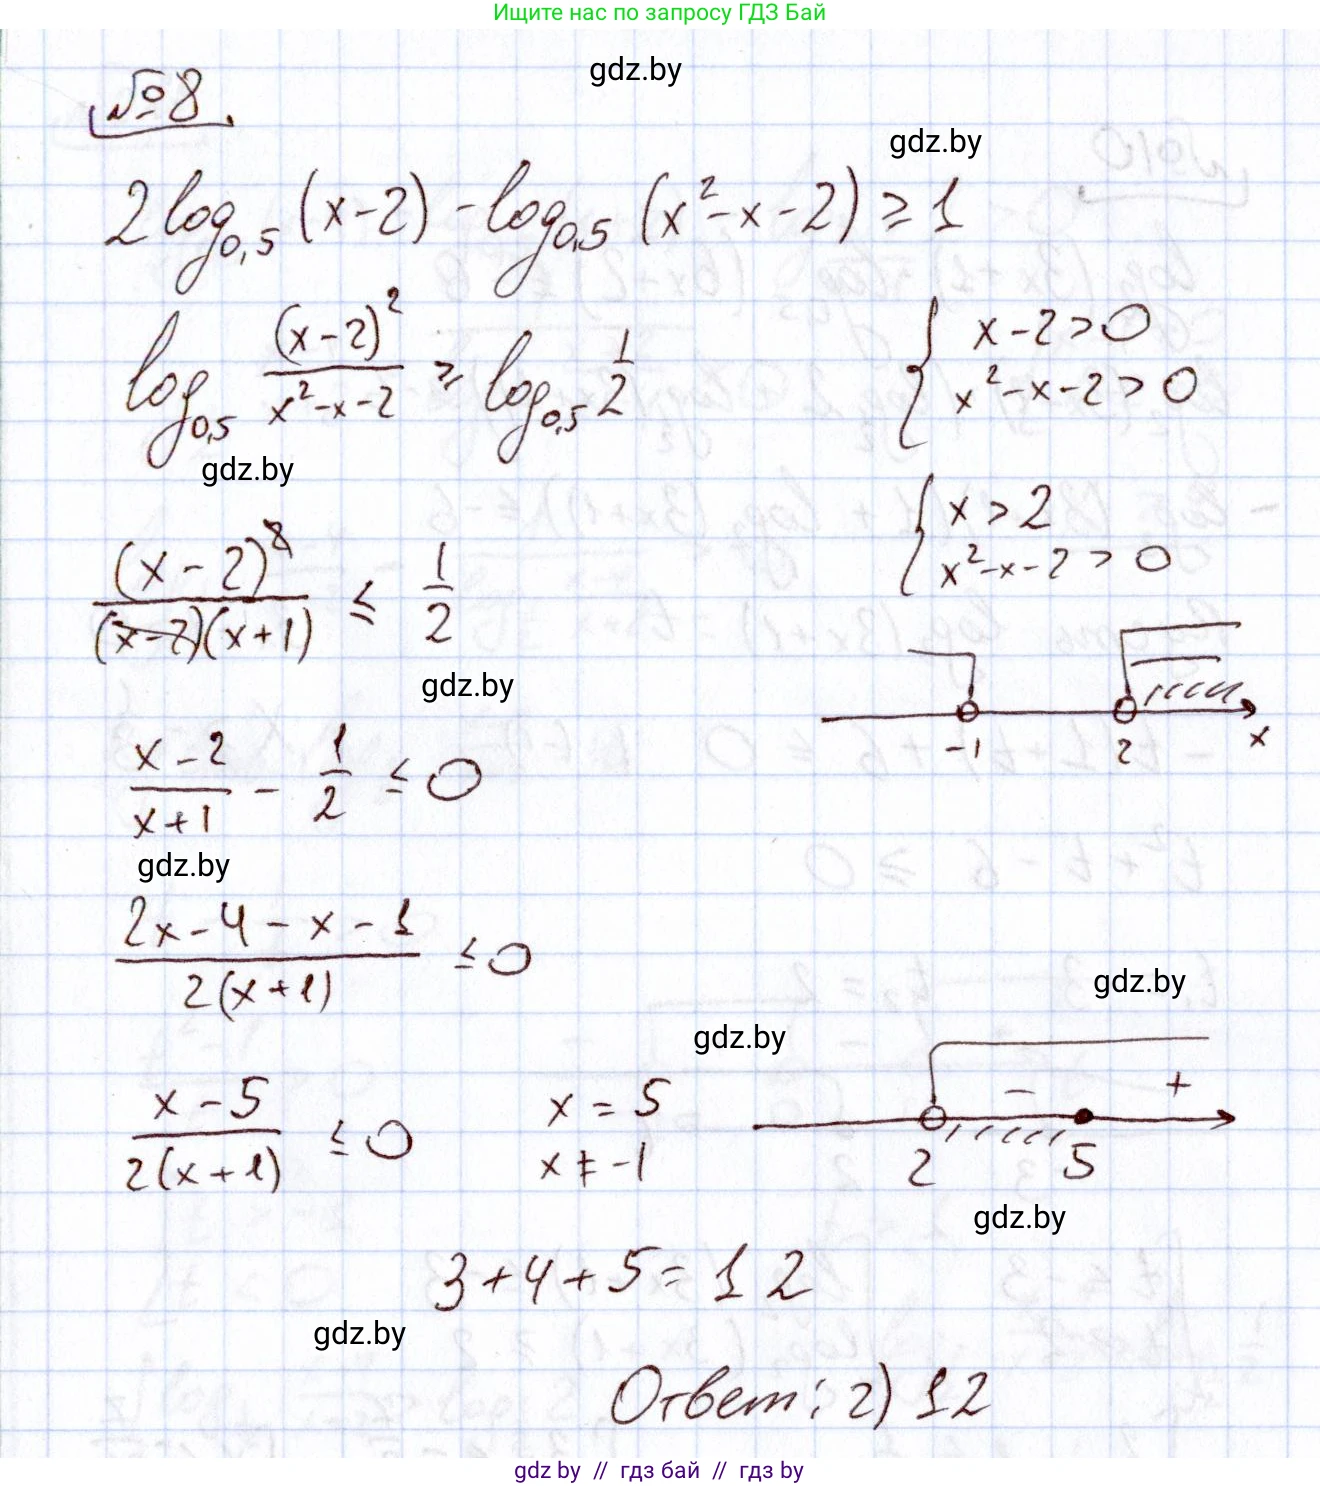 Ищите нас по запросу ГДЗ Бай
gdz.by
№8.
gdz.by
2log_{0,5}(x-2) - log_{0,5}(x²-x-2) ≥ 1
log_{0,5} (x-2)²/(x²-x-2) ≥ log_{0,5} 1/2
{ x-2>0
x²-x-2>0
gdz.by
{ x>2
x²-x-2>0
(x-2)²/((x-2)(x+1)) ≤ 1/2
gdz.by
-1 2 x
(x-2)/(x+1) - 1/2 ≤ 0
gdz.by
(2x-4-x-1)/(2(x+1)) ≤ 0
gdz.by
gdz.by
(x-5)/(2(x+1)) ≤ 0
x = 5
x ≠ -1
- +
2 5
gdz.by
3+4+5=12
gdz.by
Ответ: г) 12
gdz by // гдз бай // гдз by